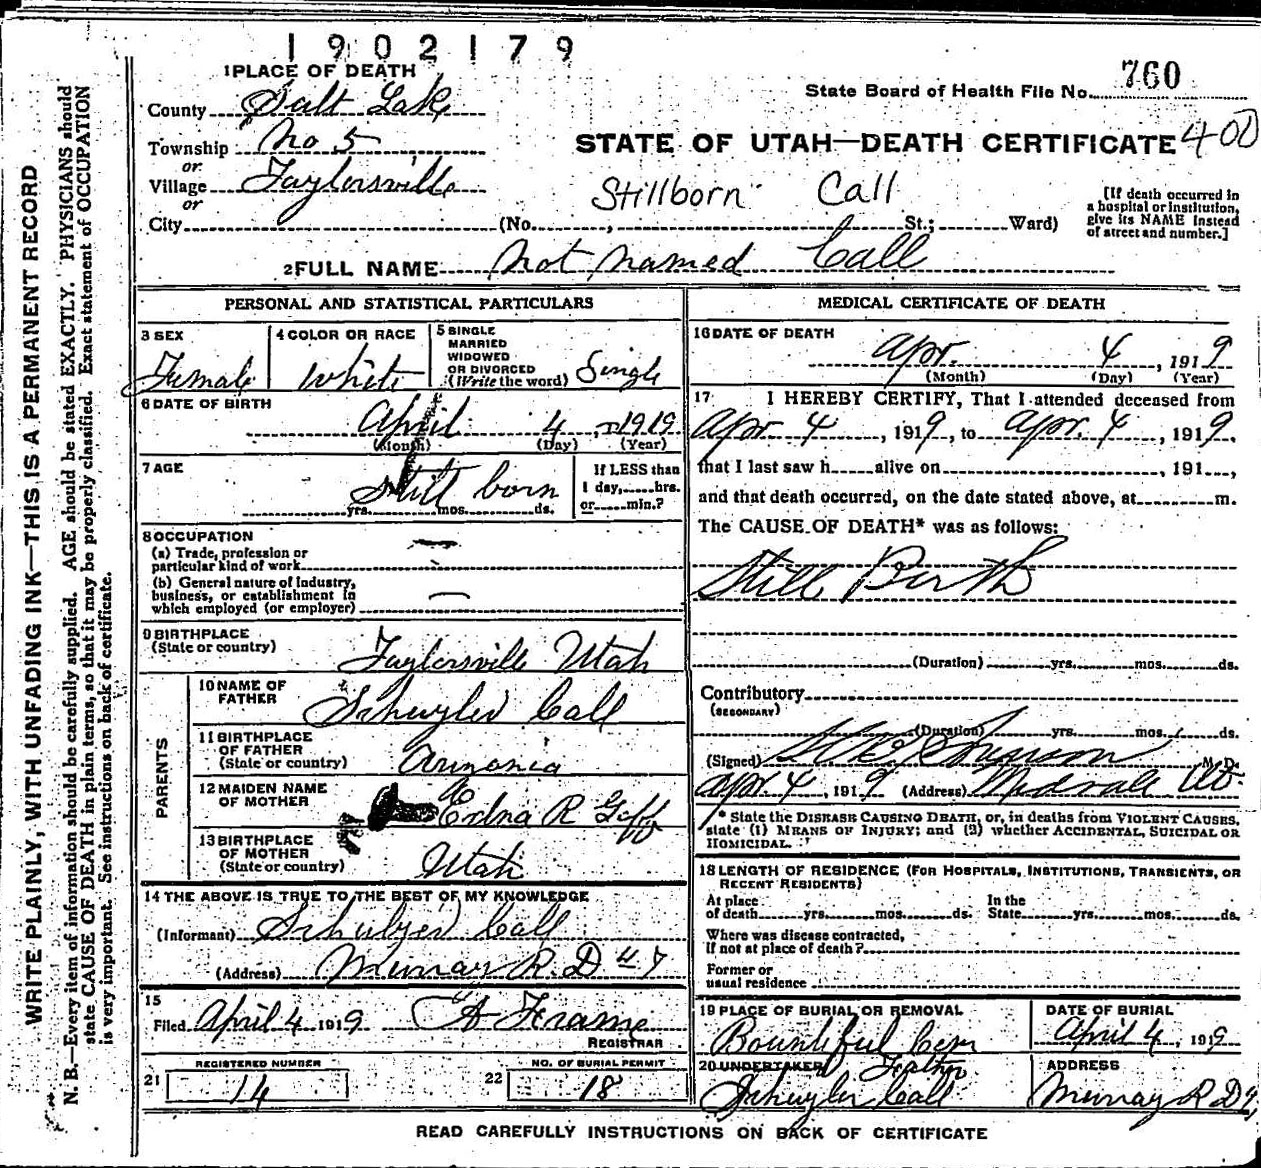 1902179
1 PLACE OF DEATH
State Board of Health File No. 760
County Salt Lake
Township No 5
STATE OF UTAH—DEATH CERTIFICATE 400
or
Village Taylorsville
or
Stillborn Call
[If death occurred in
a hospital or institution,
give its NAME instead
of street and number.]
City (No. , St.; Ward)
2 FULL NAME not named Call
PERSONAL AND STATISTICAL PARTICULARS
3 SEX
Female
4 COLOR OR RACE
White
5 SINGLE
MARRIED
WIDOWED
OR DIVORCED
(Write the word) Single
6 DATE OF BIRTH
April 4, 1919
(Month) (Day) (Year)
7 AGE
Still born
yrs. mos. ds.
If LESS than
1 day, hrs.
or min.?
8 OCCUPATION
(a) Trade, profession or
particular kind of work
(b) General nature of industry,
business, or establishment in
which employed (or employer)
9 BIRTHPLACE
(State or country)
Taylorsville Utah
PARENTS
10 NAME OF
FATHER
Schuyler Call
11 BIRTHPLACE
OF FATHER
(State or country)
12 MAIDEN NAME
OF MOTHER
Edna R Goff
13 BIRTHPLACE
OF MOTHER
(State or country)
Utah
14 THE ABOVE IS TRUE TO THE BEST OF MY KNOWLEDGE
(Informant) Schulyer Call
(Address) Murray R. D #7
15
Filed April 4 1919 A Frame
REGISTRAR
REGISTERED NUMBER
21 14
NO. OF BURIAL PERMIT
22 18
MEDICAL CERTIFICATE OF DEATH
16 DATE OF DEATH
Apr. 4, 1919
(Month) (Day) (Year)
17 I HEREBY CERTIFY, That I attended deceased from
Apr 4, 1919, to Apr. 4, 1919.
that I last saw h alive on , 191 ,
and that death occurred, on the date stated above, at m.
The CAUSE OF DEATH* was as follows:
Still Birth
(Duration) yrs. mos. ds.
Contributory
(SECONDARY)
(Duration) yrs. mos. ds.
(Signed) M. D.
Apr 4, 1919 (Address) Midvale Ut.
* State the DISEASE CAUSING DEATH, or, in deaths from VIOLENT CAUSES,
state (1) MEANS OF INJURY; and (2) whether ACCIDENTAL, SUICIDAL OR
HOMICIDAL.
18 LENGTH OF RESIDENCE (FOR HOSPITALS, INSTITUTIONS, TRANSIENTS, OR
RECENT RESIDENTS)
At place
of death yrs. mos. ds.
In the
State yrs. mos. ds.
Where was disease contracted,
If not at place of death?
Former or
usual residence
19 PLACE OF BURIAL OR REMOVAL
Bountiful Cem
DATE OF BURIAL
April 4, 1919
20 UNDERTAKER Father
Schuyler Call
ADDRESS
Murray R D
READ CAREFULLY INSTRUCTIONS ON BACK OF CERTIFICATE
WRITE PLAINLY, WITH UNFADING INK—THIS IS A PERMANENT RECORD
N. B.—Every item of information should be carefully supplied. AGE should be stated EXACTLY. PHYSICIANS should
state CAUSE OF DEATH in plain terms, so that it may be properly classified. Exact statement of OCCUPATION
is very important. See instructions on back of certificate.